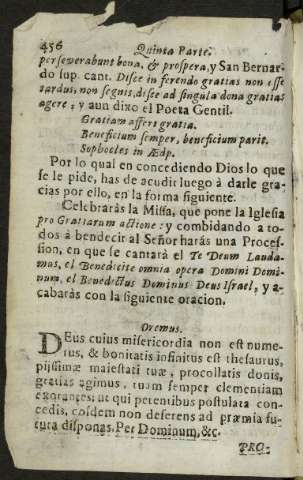 456
Quinta Parte.
perseverabunt bona, & prospera, y San Bernar-
do sup. cant. Disce in ferendo gratias non esse
tardus, non segnis, disce ad singula dona gratias
agere; y aun dixo el Poeta Gentil.
Gratiam affert gratia.
Beneficium semper, beneficium parit.
Sophocles in Ædp.
Por lo qual en concediendo Dios lo que
se le pide, has de acudir luego à darle gra-
cias por ello, en la forma siguiente.
Celebraràs la Missa, que pone la Iglesia
pro Gratiarum actione: y combidando a to-
dos à bendecir al Señor haràs una Proces-
sion, en que se cantarà el Te Deum Lauda-
mus, el Benedicite omnia opera Domini Domi-
num, el Benedictus Dominus Deus Israel, y a-
cabaràs con la siguiente oracion.
Oremus.
DEus cuius misericordia non est nume-
rus, & bonitatis infinitus est thesaurus,
pijssimæ maiestati tuæ, procollatis donis,
gratias agimus, tuam semper clementiam
exorantes; ut qui petentibus postulata con-
cedis, eosdem non deserens ad præmia fu-
tura disponas. Per Dominum, &c.
PRO-